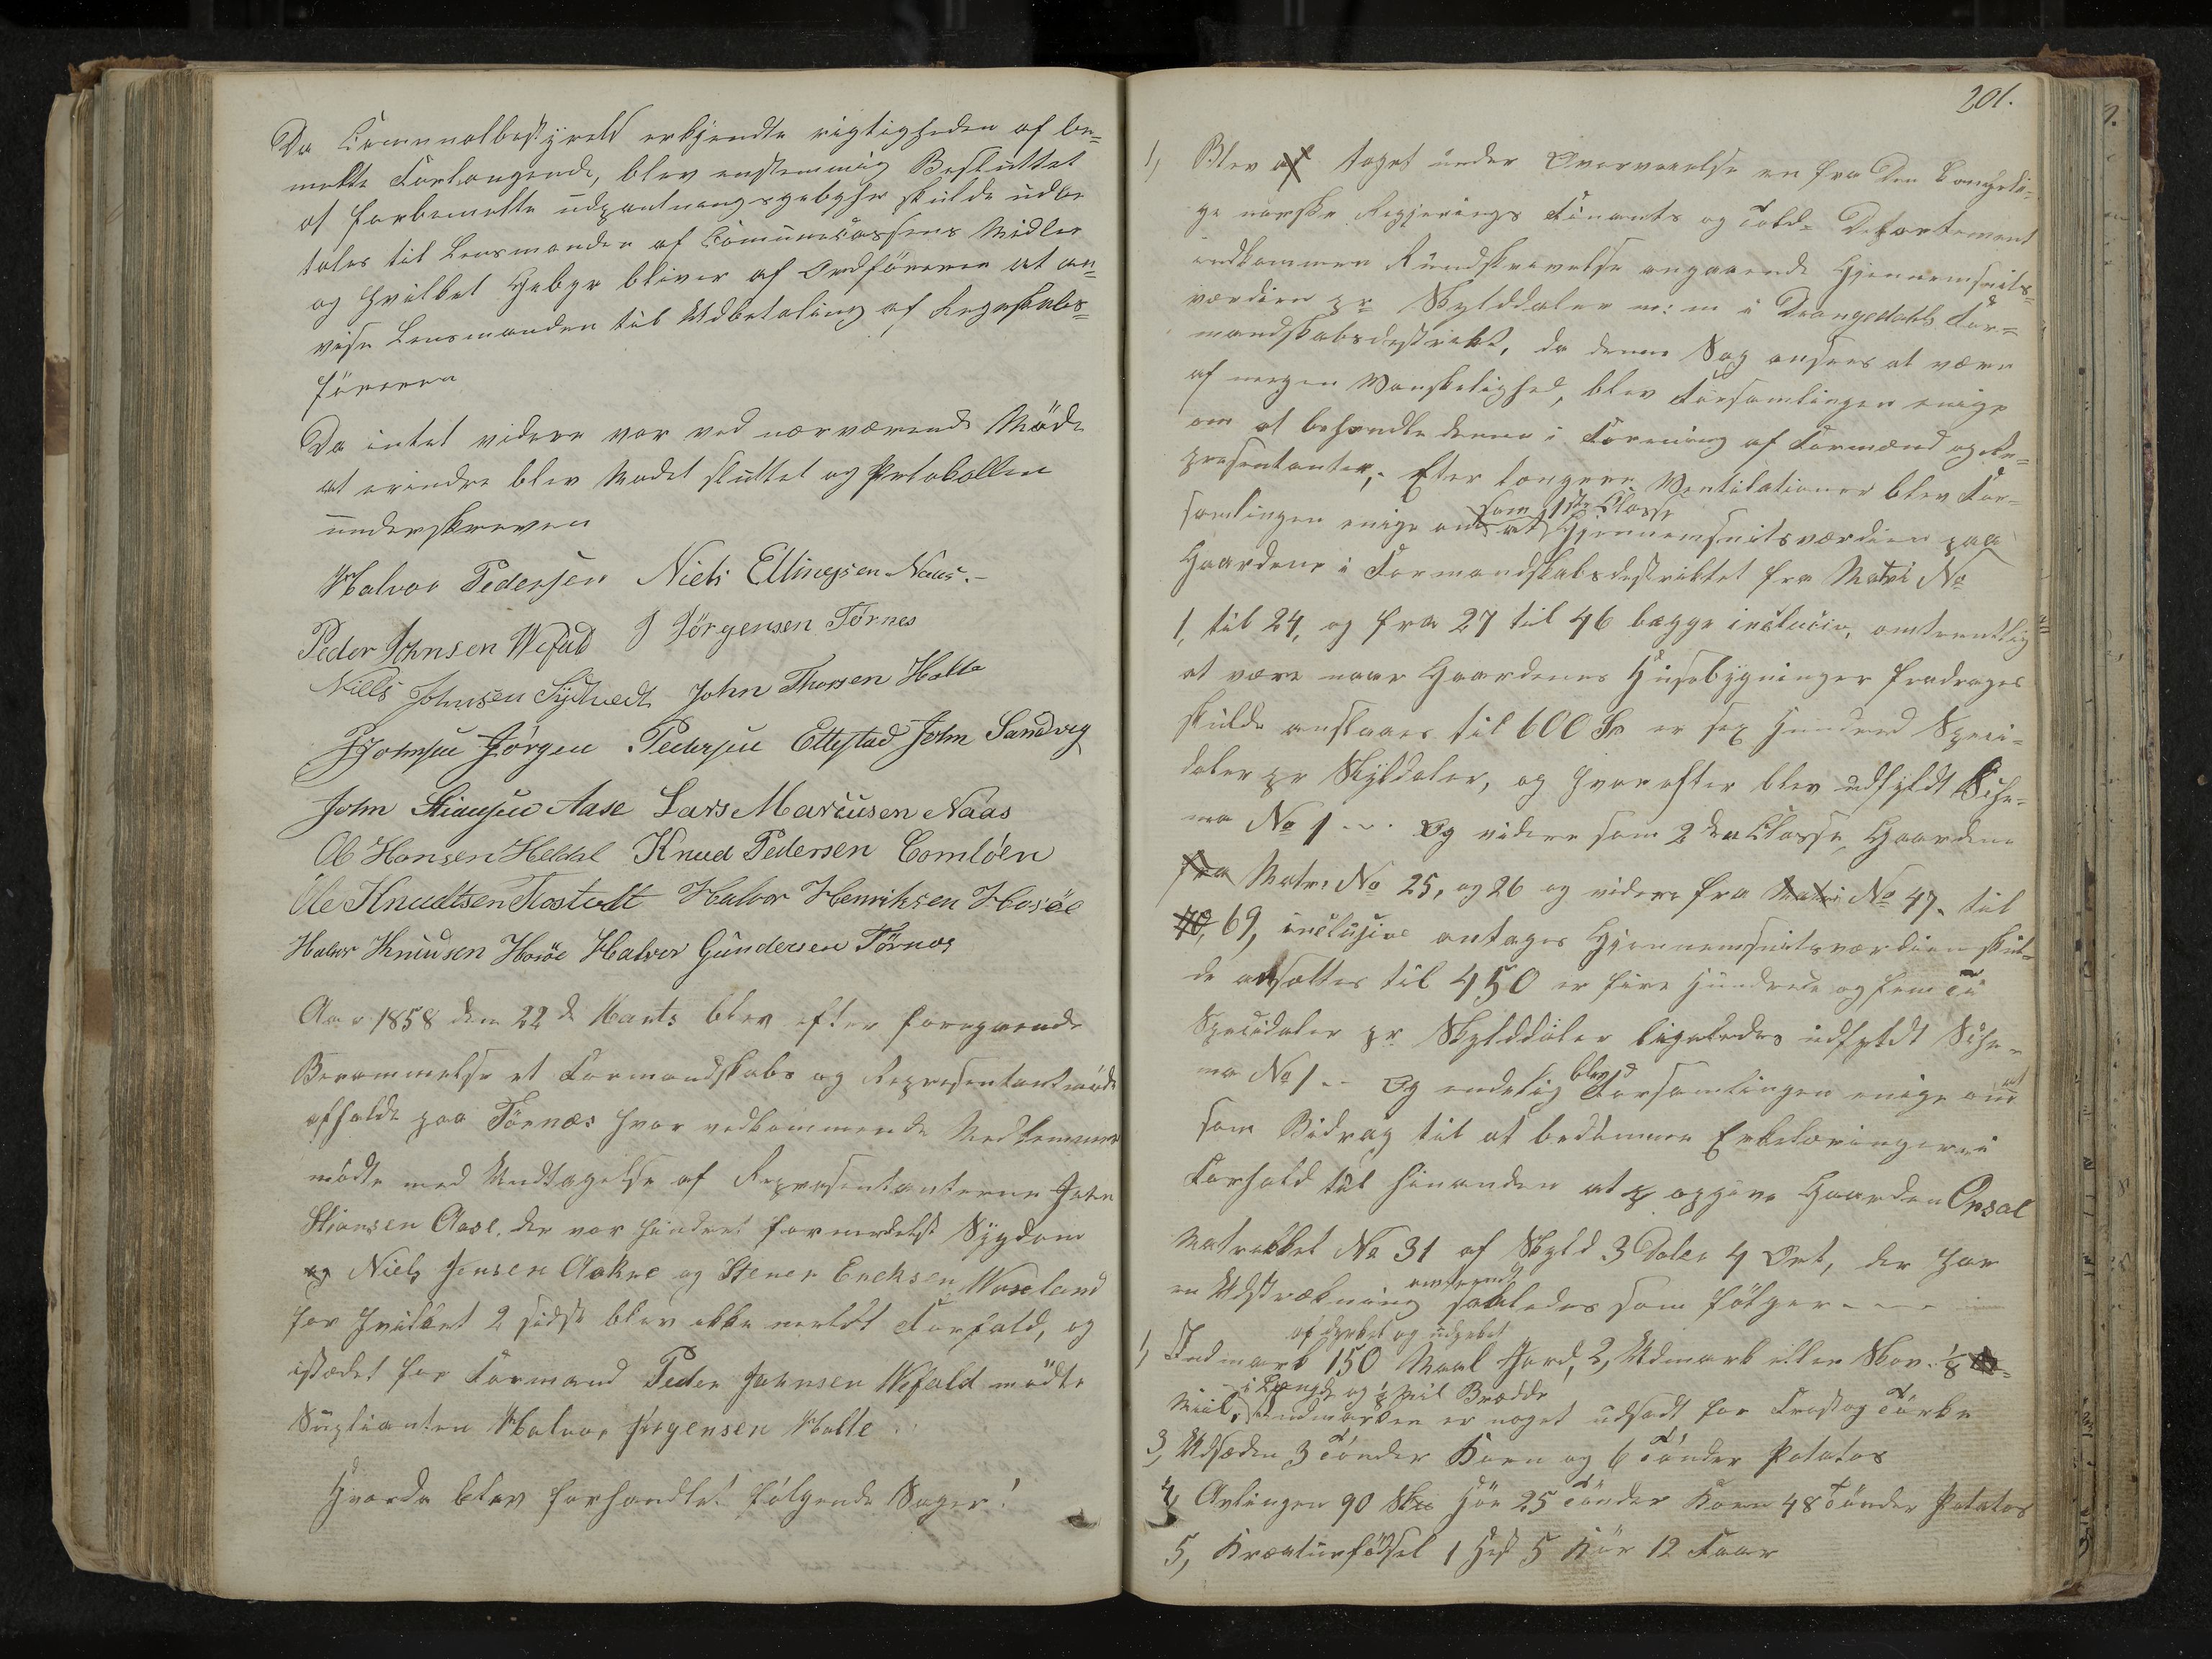 Da Communalbestyrels erkjendte rigtigheden af be=
meldte Forlangende, blev enstemmig Besluttet
at forbemelte udpantnengsgebyhr skulde udbe
tales til Lensmanden af Comunecassens Midler
og hvilket Gebyr bliver af Ordføreren at an=
vise Lensmanden til Udbetaling af Regnskabs=
føreren
Da intet videre var ved nærværende Møde
at erindre blev Mødet sluttet og Protokollen
underskreven
Halvor Pedersen Niels Ellingsen Naas.-
Peder Johnsen Wefald J Jörgensen Törnes
Niels Johnsen John Thorsen Holte
Johnsen Jörgen Pedersen Ettestad John Sandvig
John Stiansen Aase Lars Marcusen Naas
Ol Hansen Heldal Knud Pedersen
Ole Knudtsen Tostvedt Halvor Henriksen Hosøe
Halvor Knudsen Hosöe Halvor Gundersen Törnes
Aar 1858 den 22de Marts blev efter foregaaende
Berammelse et Formandskabs og Representantmøde
afholdt paa Törnæs hvor vedkommende Medlemmer
mödte med Undtagelse af Representanterne John
Stiansen Aase, der var hindret formedelst Sygdom
og Niels Jensen Aakre og Stener Ereksen Waseland
for hvilket 2 sidste blev ikke meldt Forfald, og
istædet for Formand Peder Johnsen Wefald mödte
Suplianten Halvor Jörgensen Holte
Hvorda blev forhandlet følgende Sager!
201.
1, Blev af taget under Overveielse en fra Den Kongeli=
ge norske Regjerings Finants og Told= Departement
indkommen Rundskrivelse angaaende Gjennemsnits=
værdien pr Skylddaler m: m i Drangedahls For=
mandskabsdestrikt, da denne Sag ansees at være
af megen Vanskelighed, blev Forsamlingen enige
om at behandle denne i Forening af Formænd og Re=
presentanter,- Efter længere Ventilationer blev For=
som 1ste Classe
samlingen enige om at Gjennemsnitsværdien paa
Gaardene i Formandskabsdestriktet fra Matri No
1, til 24, og fra 27 til 46 begge inclusiv, omtrentlig
at være naar Gaardenes Husebygninger fradrages
skulde anslaaes til 600 Sp er sex Hundred Speci=
daler pr Skyldaler, og hvorefter blev udfyldt Sche=
ma No 1 ... Og videre som 2den Classe, Gaardene
fra Matr: No 25, og 26 og videre fra Matri No 47. til
70, 69, inclusive antages Gjennemsnitsværdien skul=
de ansættes til 450 er fire Hundrede og femti
Specidaler pr Skylddaler ligeledes udfyldt Sche=
blev
ma No 1 .. Og endelig Forsamlingen enige om at
som Bidrag til at bedømme Erklæringerne i
Forhold til hinanden at opgive Gaarden Orsal
Matrikkel No 31 af Skyld 3 Daler 4 Ort, der har
omtrendt
en Udstrækning saaledes som følger - - -
af dyrket og udyrket
1, Indmark 150 Maal Jord, 2, Udmark eller Skov 1/8
i Længde og Miil Bredde
Miil, Indmarken er noget udsadt for Frost og Törke
3, Udsæden 3 Tönder Korn og 6 Tönder Potatos
4, Avlingen 90 Höe 25 Tönder Korn 48 Tönder Potatos
5, Kreaturfödsel 1 Hest 5 Kör 12 Faar